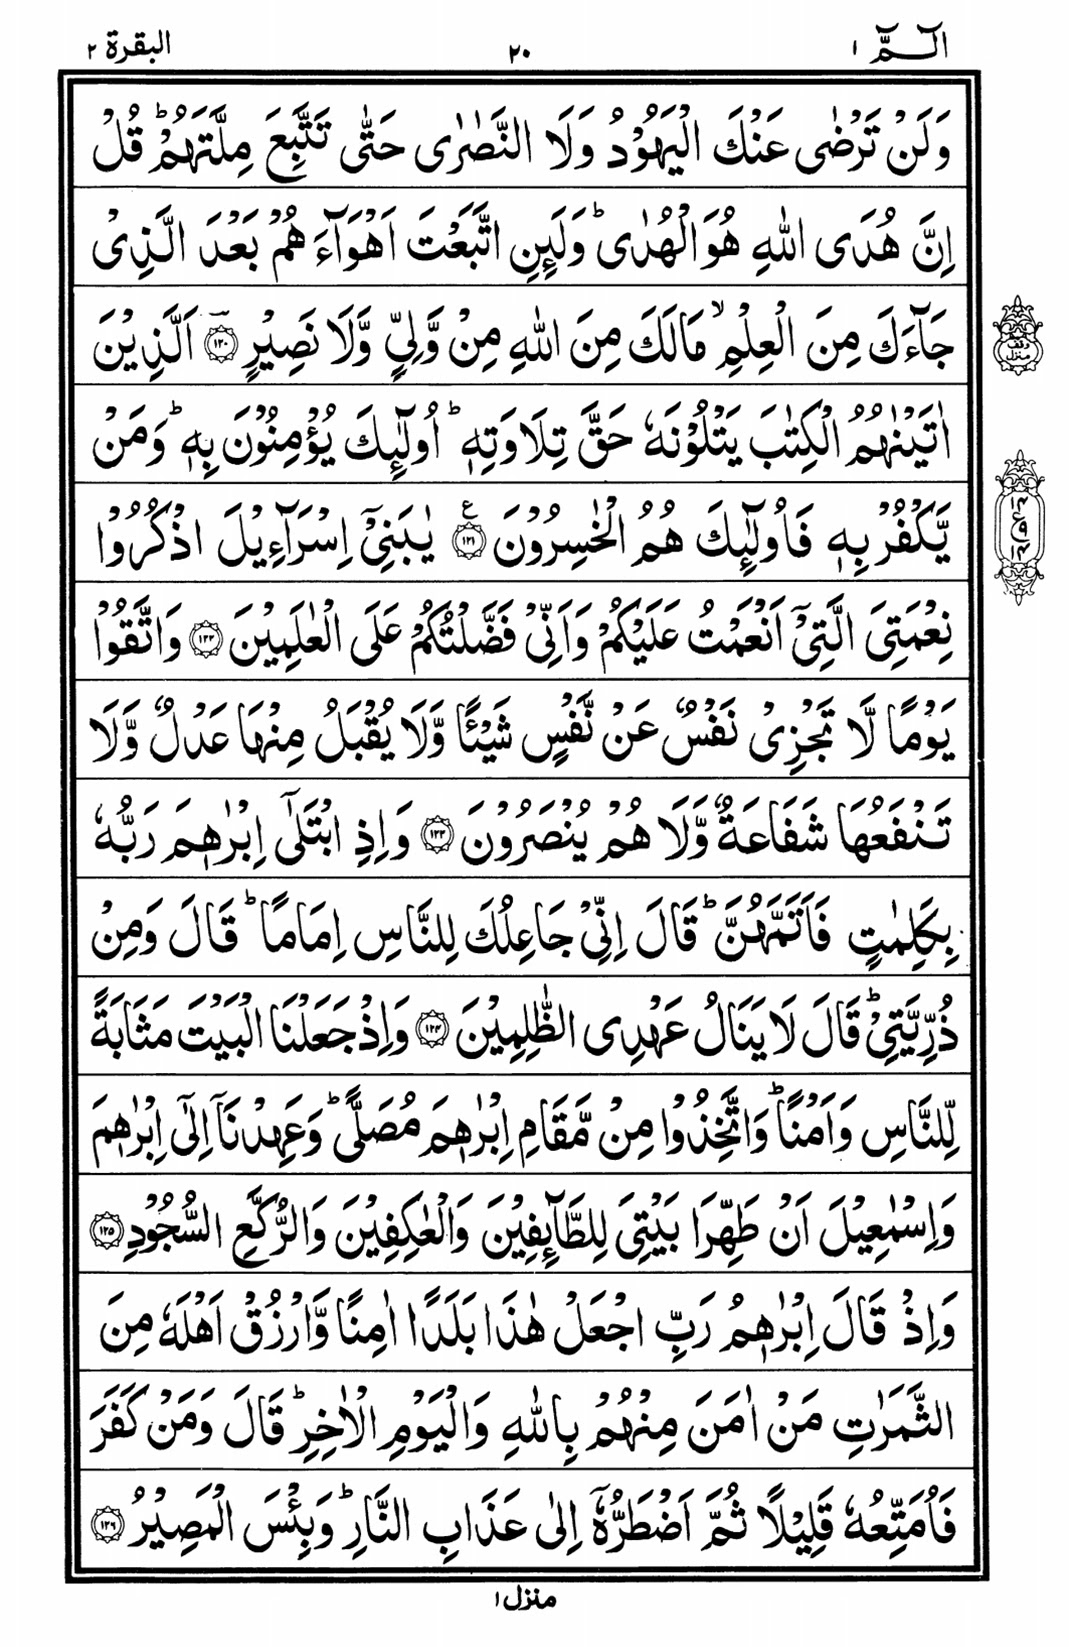 الٓـمّٓ ١
٢٠
البقرة ٢
وَلَنْ تَرْضٰى عَنْكَ الْيَهُوْدُ وَلَا النَّصٰرٰى حَتّٰى تَتَّبِعَ مِلَّتَهُمْ ؕ قُلْ
اِنَّ هُدَى اللّٰهِ هُوَ الْهُدٰى ؕ وَلَئِنِ اتَّبَعْتَ اَهْوَآءَهُمْ بَعْدَ الَّذِىْ
جَآءَكَ مِنَ الْعِلْمِ ۙ مَا لَكَ مِنَ اللّٰهِ مِنْ وَّلِىٍّ وَّلَا نَصِيْرٍ ﴿۱۲۰﴾ اَلَّذِيْنَ
اٰتَيْنٰهُمُ الْكِتٰبَ يَتْلُوْنَهٗ حَقَّ تِلَاوَتِهٖ ؕ اُولٰٓئِكَ يُؤْمِنُوْنَ بِهٖ ؕ وَمَنْ
يَّكْفُرْ بِهٖ فَاُولٰٓئِكَ هُمُ الْخٰسِرُوْنَ ﴿۱۲۱﴾ ع يٰبَنِىْٓ اِسْرَآءِيْلَ اذْكُرُوْا
نِعْمَتِىَ الَّتِىْٓ اَنْعَمْتُ عَلَيْكُمْ وَاَنِّىْ فَضَّلْتُكُمْ عَلَى الْعٰلَمِيْنَ ﴿۱۲۲﴾ وَاتَّقُوْا
يَوْمًا لَّا تَجْزِىْ نَفْسٌ عَنْ نَّفْسٍ شَيْـًٔا وَّلَا يُقْبَلُ مِنْهَا عَدْلٌ وَّلَا
تَنْفَعُهَا شَفَاعَةٌ وَّلَا هُمْ يُنْصَرُوْنَ ﴿۱۲۳﴾ وَاِذِ ابْتَلٰٓى اِبْرٰهٖمَ رَبُّهٗ
بِكَلِمٰتٍ فَاَتَمَّهُنَّ ؕ قَالَ اِنِّىْ جَاعِلُكَ لِلنَّاسِ اِمَامًا ؕ قَالَ وَمِنْ
ذُرِّيَّتِىْ ؕ قَالَ لَا يَنَالُ عَهْدِى الظّٰلِمِيْنَ ﴿۱۲۴﴾ وَاِذْ جَعَلْنَا الْبَيْتَ مَثَابَةً
لِّلنَّاسِ وَاَمْنًا ؕ وَاتَّخِذُوْا مِنْ مَّقَامِ اِبْرٰهٖمَ مُصَلًّى ؕ وَعَهِدْنَآ اِلٰٓى اِبْرٰهٖمَ
وَاِسْمٰعِيْلَ اَنْ طَهِّرَا بَيْتِىَ لِلطَّآئِفِيْنَ وَالْعٰكِفِيْنَ وَالرُّكَّعِ السُّجُوْدِ ﴿۱۲۵﴾
وَاِذْ قَالَ اِبْرٰهٖمُ رَبِّ اجْعَلْ هٰذَا بَلَدًا اٰمِنًا وَّارْزُقْ اَهْلَهٗ مِنَ
الثَّمَرٰتِ مَنْ اٰمَنَ مِنْهُمْ بِاللّٰهِ وَالْيَوْمِ الْاٰخِرِ ؕ قَالَ وَمَنْ كَفَرَ
فَاُمَتِّعُهٗ قَلِيْلًا ثُمَّ اَضْطَرُّهٗٓ اِلٰى عَذَابِ النَّارِ ؕ وَبِئْسَ الْمَصِيْرُ ﴿۱۲۶﴾
منزل ١
وقف
منزل